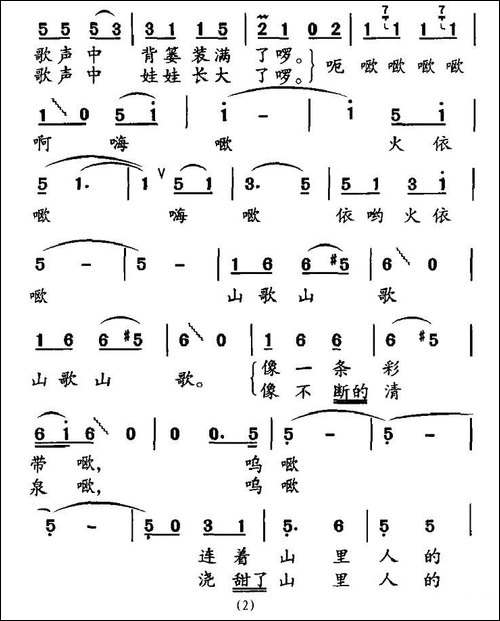 5 5 5 5 | 5 1 1 5 | 2 1 0 2 | 1 1 1 1 |
歌声中 背篓装满 了啰。 呃 噷噷噷噷
歌声中 娃娃长大 了啰。
1 0 5 i | i - | i 5 i |
啊 嗨 噷 火依
5 1. | 1 ∨ 5 1 | 3. 5 | 5 1 3 i |
噷 嗨 噷 依哟火依
5 - | 5 - | 1 6 6 #5 | 6 0 |
噷 山歌山 歌
1 6 6 #5 | 6 0 | 1 6 6 | 6 #5 |
山歌山 歌。 像一条 彩
像不断的清
6 i 6 0 | 0 0. 5 | 5 - | 5 - |
带噷, 呜噷
泉噷, 呜噷
5 - | 5 0 3 1 | 5. 6 | 5 5 |
连着 山里 人的
浇甜了山里 人的
(2)